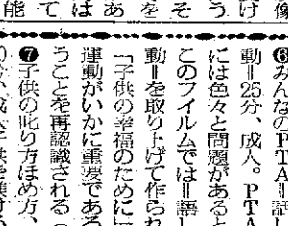 像
け
う
そ
を
あ
は
て
能
❻みんなのPTA＝話し
動＝25分、成人。PTA
には色々と問題があると
このフイルムでは＝語し
動＝を取り上げて作られ
「子供の幸福のために一
運動がいかに重要である
うことを再認識される（
❼子供の叱り方ほめ方、